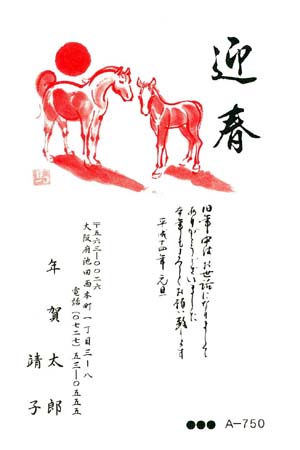 迎春
旧年中はお世話になりまして
ありがとうございました
今年もよろしくお願い致します
平成十四年 元旦
〒五六三-〇〇二六
大阪府池田西本町一丁目三-八
電話(〇七二七)五三-〇五五五
年賀 太郎
靖子
●●● A-750